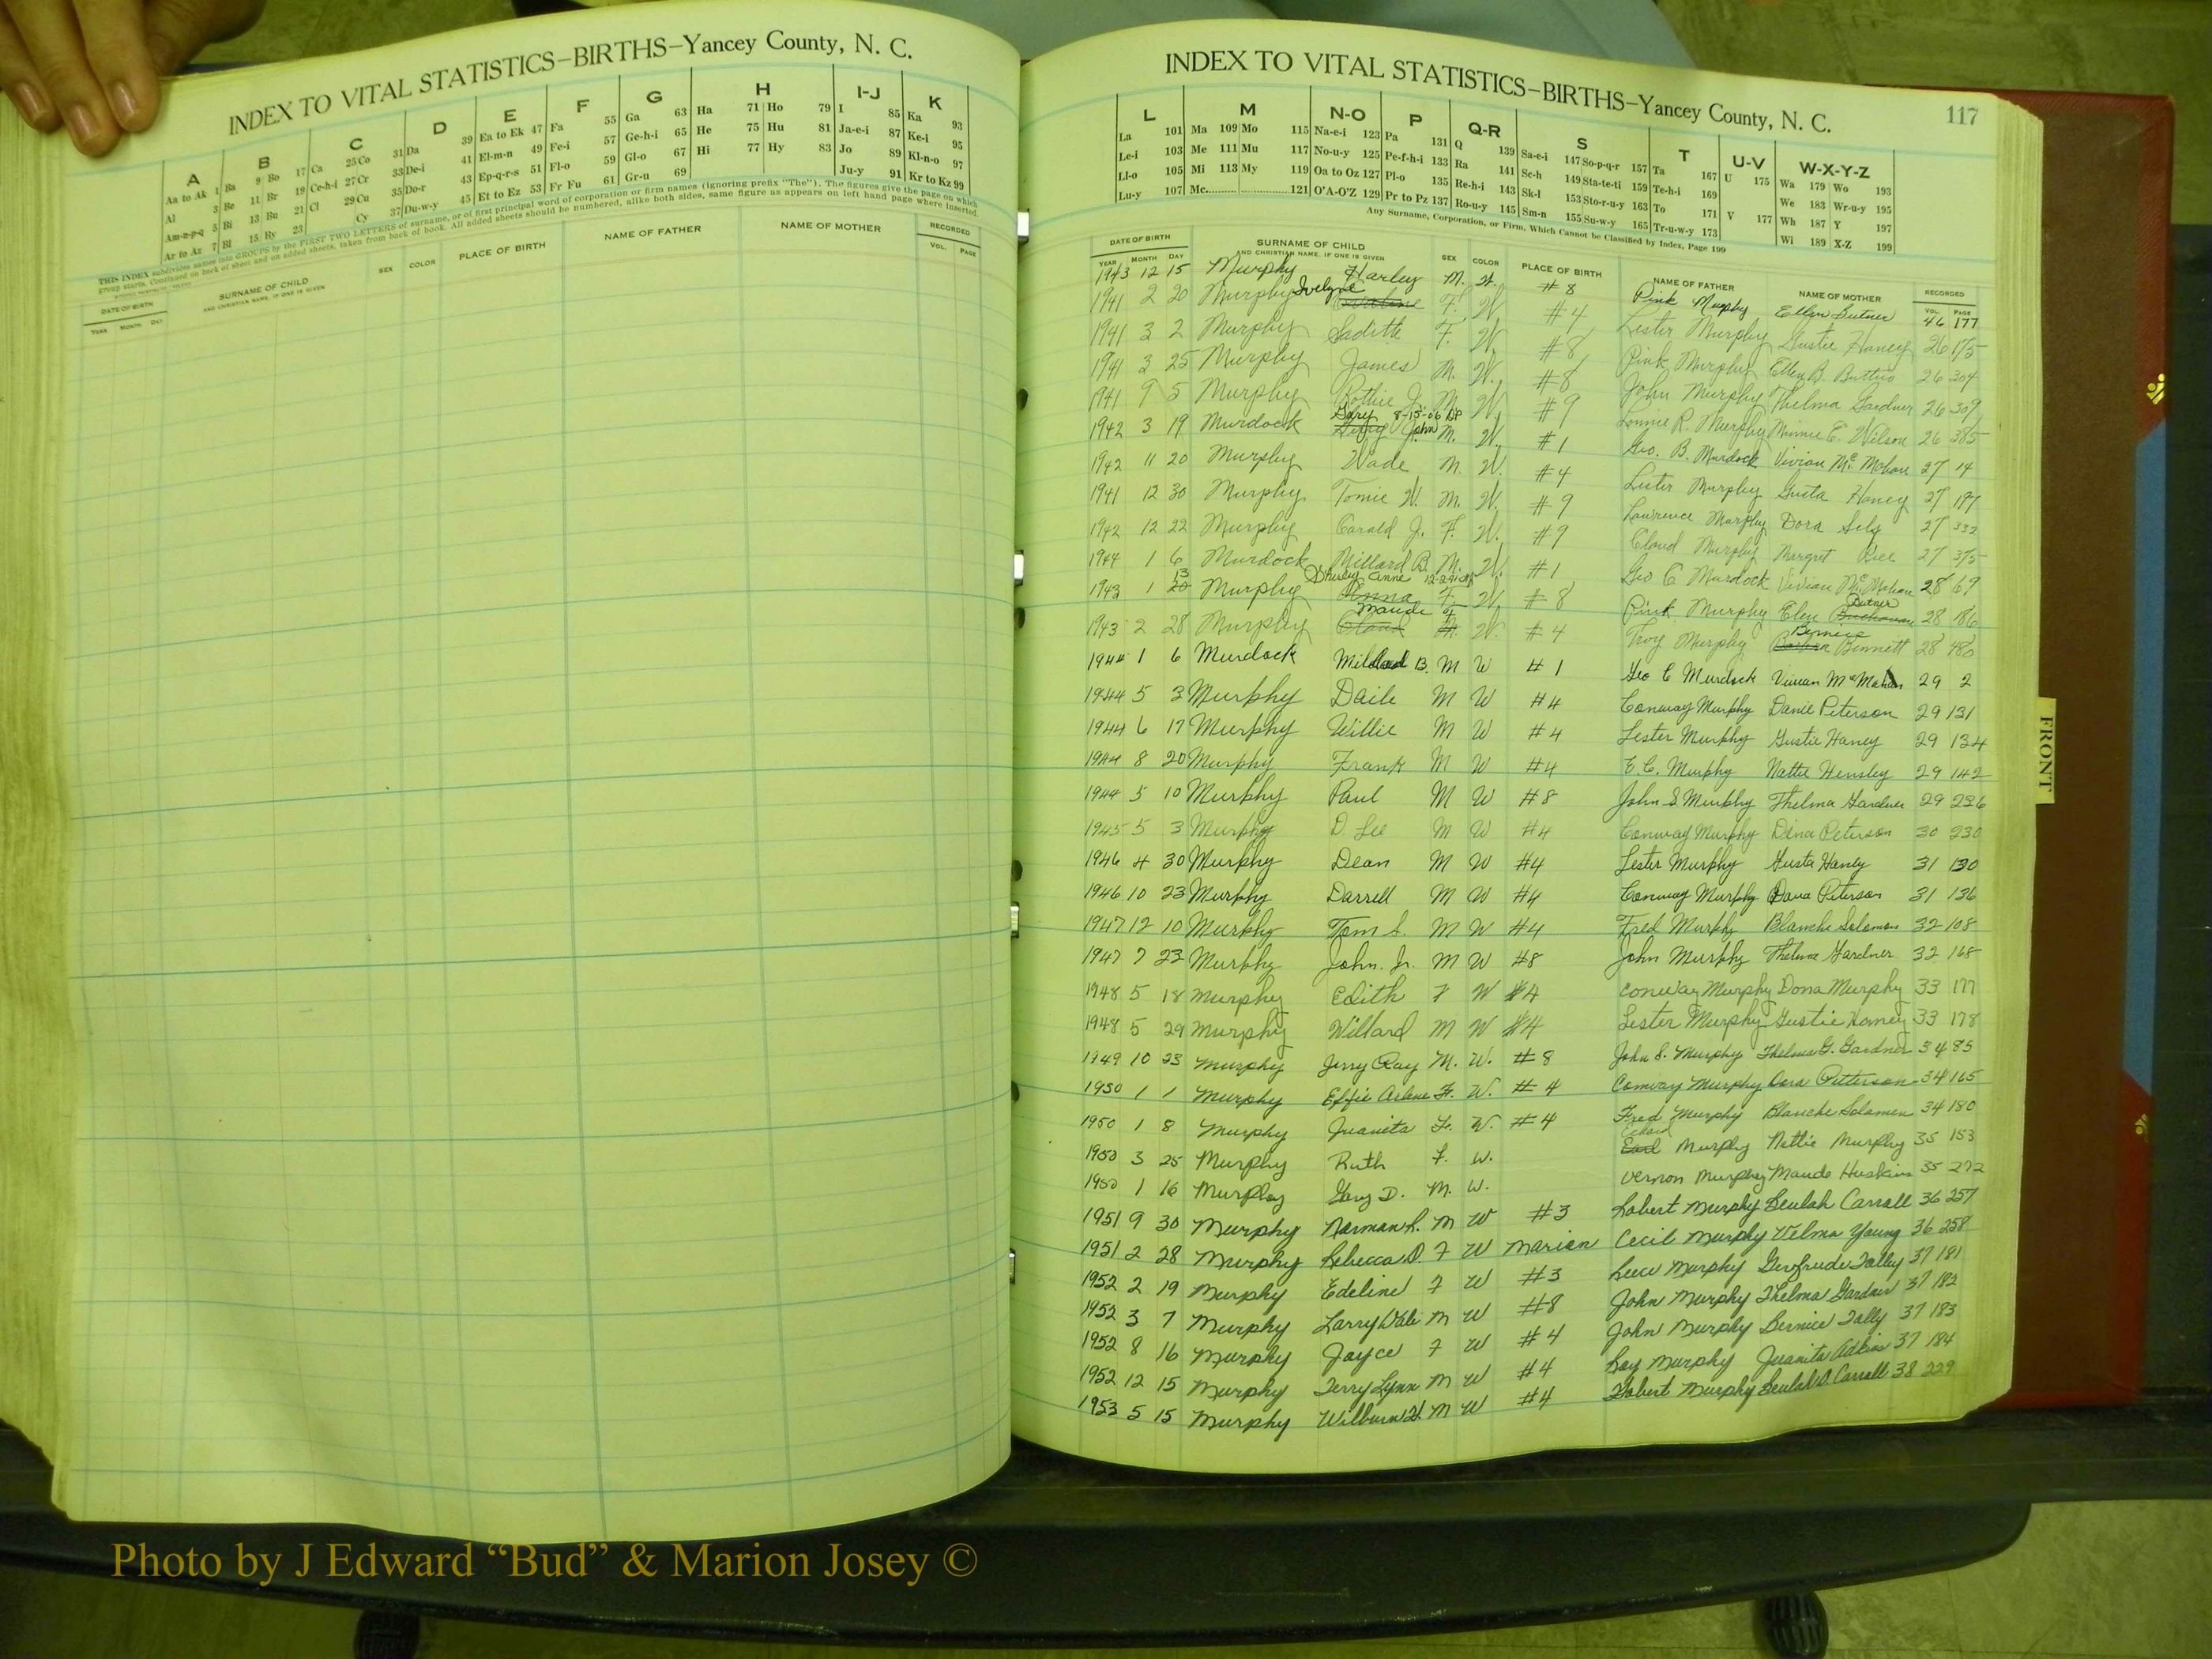 INDEX TO VITAL STATISTICS–BIRTHS–Yancey County, N. C.
A B C D E F G H I-J K
Aa to Ak 1 Ba 9 Bo 17 Ca 25 Co 31 Da 39 Ea to Ek 47 Fa 55 Ga 63 Ha 71 Ho 79 I 85 Ka 93
Al 3 Be 11 Br 19 Ce-h-i 27 Cr 33 De-i 41 El-m-n 49 Fe-i 57 Ge-h-i 65 He 75 Hu 81 Ja-e-i 87 Ke-i 95
Am-n-p-q 5 Bi 13 Bu 21 Cl 29 Cu 35 Do-r 43 Ep-q-r-s 51 Fl-o 59 Gl-o 67 Hi 77 Hy 83 Jo 89 Kl-n-o 97
Ar to Az 7 Bl 15 By 23 Cy 37 Du-w-y 45 Et to Ez 53 Fr Fu 61 Gr-u 69 Ju-y 91 Kr to Kz 99
THIS INDEX subdivides names into GROUPS by the FIRST TWO LETTERS of surname, or of first principal word of corporation or firm names (ignoring prefix "The"). The figures give the page on which
group starts. Continued on back of sheet and on added sheets, taken from back of book. All added sheets should be numbered, alike both sides, same figure as appears on left hand page where inserted.
DATE OF BIRTH SURNAME OF CHILD SEX COLOR PLACE OF BIRTH NAME OF FATHER NAME OF MOTHER RECORDED
YEAR MONTH DAY AND CHRISTIAN NAME, IF ONE IS GIVEN VOL. PAGE
INDEX TO VITAL STATISTICS–BIRTHS–Yancey County, N. C. 117
L M N-O P Q-R S T U-V W-X-Y-Z
La 101 Ma 109 Mo 115 Na-e-i 123 Pa 131 Q 139 Sa-e-i 147 So-p-q-r 157 Ta 167 U 175 Wa 179 Wo 193
Le-i 103 Me 111 Mu 117 No-u-y 125 Pe-f-h-i 133 Ra 141 Sc-h 149 Sta-te-ti 159 Te-h-i 169 We 183 Wr-u-y 195
Ll-o 105 Mi 113 My 119 Oa to Oz 127 Pl-o 135 Re-h-i 143 Sk-l 153 Sto-r-u-y 163 To 171 V 177 Wh 187 Y 197
Lu-y 107 Mc 121 O'A-O'Z 129 Pr to Pz 137 Ro-u-y 145 Sm-n 155 Su-w-y 165 Tr-u-w-y 173 Wi 189 X-Z 199
Any Surname, Corporation, or Firm, Which Cannot be Classified by Index, Page 199
DATE OF BIRTH SURNAME OF CHILD SEX COLOR PLACE OF BIRTH NAME OF FATHER NAME OF MOTHER RECORDED
YEAR MONTH DAY AND CHRISTIAN NAME, IF ONE IS GIVEN VOL. PAGE
1943 12 15 Murphy Harley M. W. #8 Pink Murphy Ellen Butner 46 177
1941 2 20 Murphy Ivelyne F. W. #4 Lester Murphy Gustie Haney 26 175
1941 3 2 Murphy Sadith F. W. #8 Pink Murphy Ellen B. 26 304
1941 3 25 Murphy James M. W. #8 John Murphy Thelma Gardner 26 309
1941 9 5 Murphy J. M. W. #9 Lonnie R. Murphy Minnie E. Wilson 26 385
1942 3 19 Murdock Gary 8-15-06 John M. W. #1 Geo. B. Murdock Vivian McMahan 27 14
1942 11 20 Murphy Wade M. W. #4 Lester Murphy Gusta Haney 27 187
1941 12 30 Murphy Tomie W. M. W. #9 Lawrence Murphy Dora 27 332
1942 12 22 Murphy Carald J. F. W. #9 Cloud Murphy Margret Rice 27 375
1944 1 6 Murdock Millard B. M. W. #1 Geo C Murdock Vivian McMahan 28 69
1943 1 13 20 Murphy Shirley Anne Anna F. W. #8 Pink Murphy Elen Butner 28 186
1943 2 28 Murphy Maude F W. #4 Troy Murphy Bernice Bennett 28 480
1944 1 6 Murdock Millard B. M W #1 Geo C Murdock Vivian McMahan 29 2
1944 5 3 Murphy Daile M W #4 Conway Murphy Danie Peterson 29 131
1944 6 17 Murphy Willie M W #4 Lester Murphy Gustie Haney 29 134
1944 8 20 Murphy Frank M W #4 E.C. Murphy Nattie Hensley 29 142
1944 5 10 Murphy Paul M W #8 John S Murphy Thelma Gardner 29 236
1945 5 3 Murphy D. Lee M W #4 Conway Murphy Dina Peterson 30 230
1946 4 30 Murphy Dean M W #4 Lester Murphy Gusta Haney 31 130
1946 10 23 Murphy Darrell M W #4 Conway Murphy Dava Peterson 31 136
1947 12 10 Murphy Tom S. M W #4 Fred Murphy Blanche Solomon 32 108
1947 7 23 Murphy John. Jr. M W #8 John Murphy Thelma Gardner 32 168
1948 5 18 Murphy Edith F W #4 Conway Murphy Dona Murphy 33 177
1948 5 29 Murphy Willard M W #4 Lester Murphy Gustie Haney 33 178
1949 10 23 Murphy Jerry Ray M. W. #8 John S. Murphy Thelma G. Gardner 34 85
1950 1 1 Murphy Effie Arlene F. W. #4 Conway Murphy Dora Petterson 34 165
1950 1 8 Murphy Juanita F. W. #4 Fred Murphy Blanche Solomen 34 180
1950 3 25 Murphy Ruth F. W. Earl Murphy Nettie Murphy 35 153
1950 1 16 Murphy Gary D. M. W. Vernon Murphy Maude Huskins 35 272
1951 9 30 Murphy Norman R. M W #3 Robert Murphy Beulah Carroll 36 257
1951 2 28 Murphy Rebecca D. F W Marion Cecil Murphy Velma Young 36 258
1952 2 19 Murphy Edeline F W #3 Reece Murphy Gertrude Tolley 37 181
1952 3 7 Murphy Larry Dale M W #8 John Murphy Thelma Gardner 37 182
1952 8 16 Murphy Joyce F W #4 John Murphy Bernice Tally 37 183
1952 12 15 Murphy Terry Lynn M W #4 Roy Murphy Juanita Adkins 37 184
1953 5 15 Murphy Wilburn H. M W #4 Robert Murphy Beulah D. Carroll 38 229
FRONT
Photo by J Edward “Bud” & Marion Josey ©